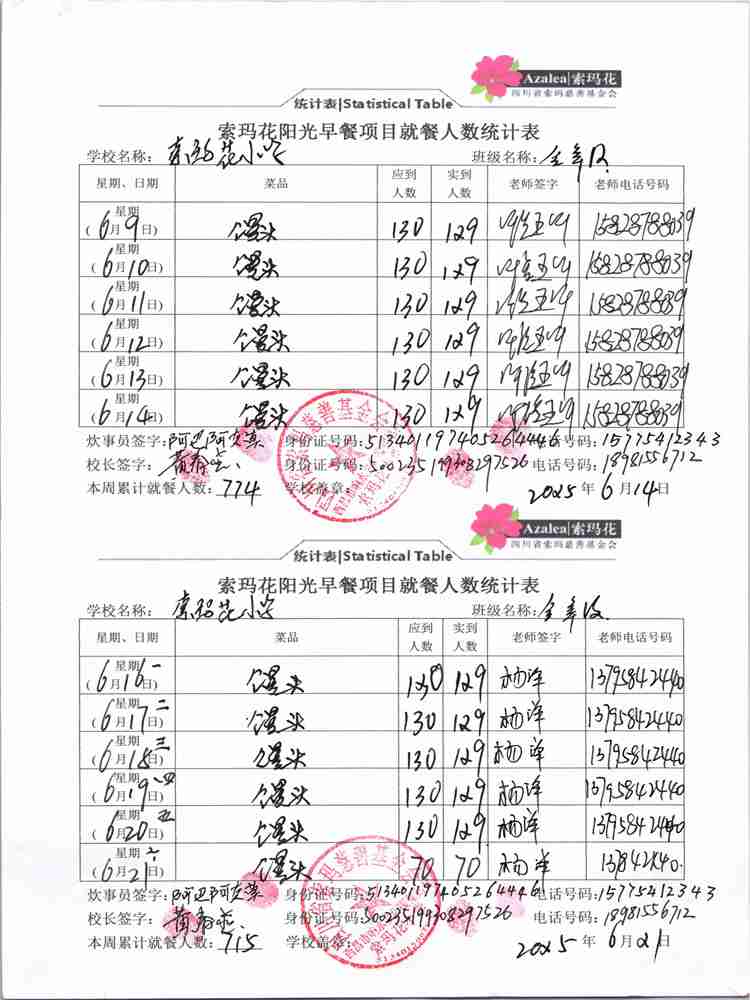 Azalea|索玛花
四川省索玛慈善基金会
统计表|Statistical Table
索玛花阳光早餐项目就餐人数统计表
学校名称: 索玛花小学 班级名称: 全年级
星期、日期 菜品 应到人数 实到人数 老师签字 老师电话号码
星期 (6月9日) 馒头 130 129 15828788039
星期 (6月10日) 馒头 130 129 15828788039
星期 (6月11日) 馒头 130 129 15828788039
星期 (6月12日) 馒头 130 129 15828788039
星期 (6月13日) 馒头 130 129 15828788039
星期 (6月14日) 馒头 130 129 15828788039
炊事员签字: 身份证号码: 513401197405264446 电话号码: 15775412343
校长签字: 身份证号码: 500235199308297526 电话号码: 18981556712
本周累计就餐人数: 774 学校盖章: 2025年6月14日
Azalea|索玛花
四川省索玛慈善基金会
统计表|Statistical Table
索玛花阳光早餐项目就餐人数统计表
学校名称: 索玛花小学 班级名称: 全年级
星期、日期 菜品 应到人数 实到人数 老师签字 老师电话号码
星期一 (6月16日) 馒头 130 129 杨洋 13795842440
星期二 (6月17日) 馒头 130 129 杨洋 13795842440
星期三 (6月18日) 馒头 130 129 杨洋 13795842440
星期四 (6月19日) 馒头 130 129 杨洋 13795842440
星期五 (6月20日) 馒头 130 129 杨洋 13795842440
星期六 (6月21日) 馒头 70 70 杨洋
炊事员签字: 身份证号码: 513401197405264446 电话号码: 15775412343
校长签字: 身份证号码: 500235199308297526 电话号码: 18981556712
本周累计就餐人数: 715 学校盖章: 2025年6月21日